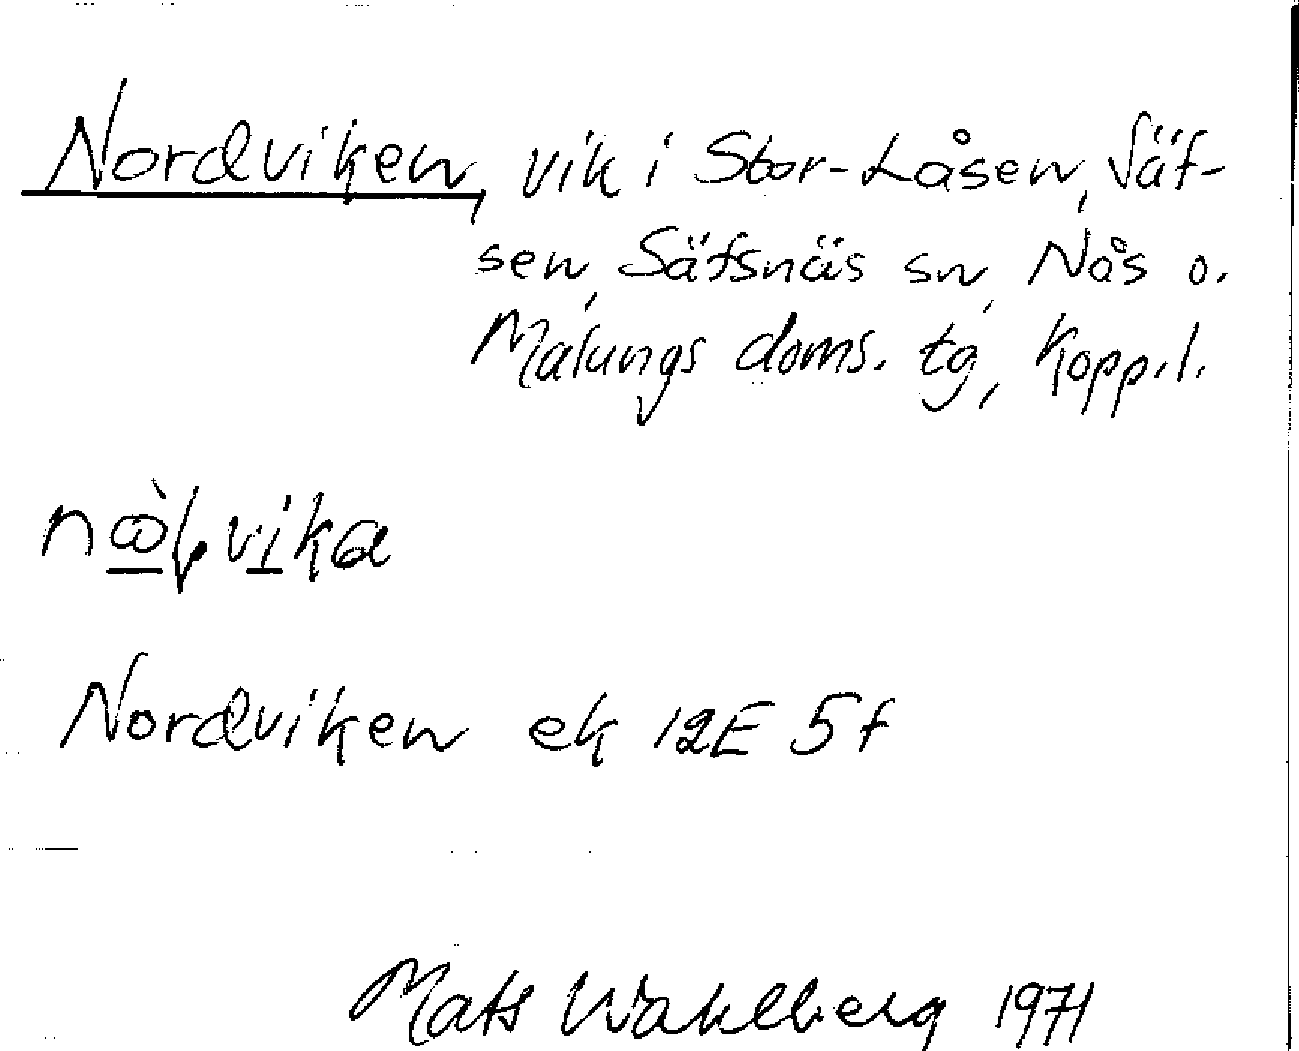 Nordviken, vik i Stor-Låsen, Säf-
sen, Säfsnäs sn, Nås o.
Malungs doms. tg, Kopp.l.
Nordviken ek 12E 5f
Mats Wahlberg 1971